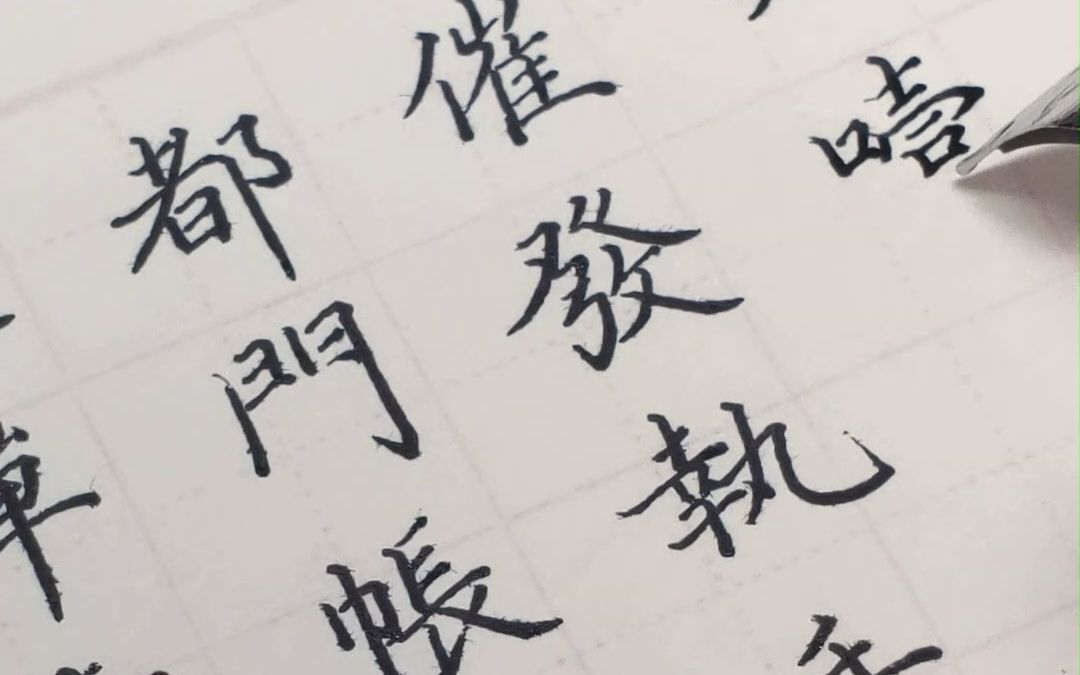 噎
催發執
都門帳